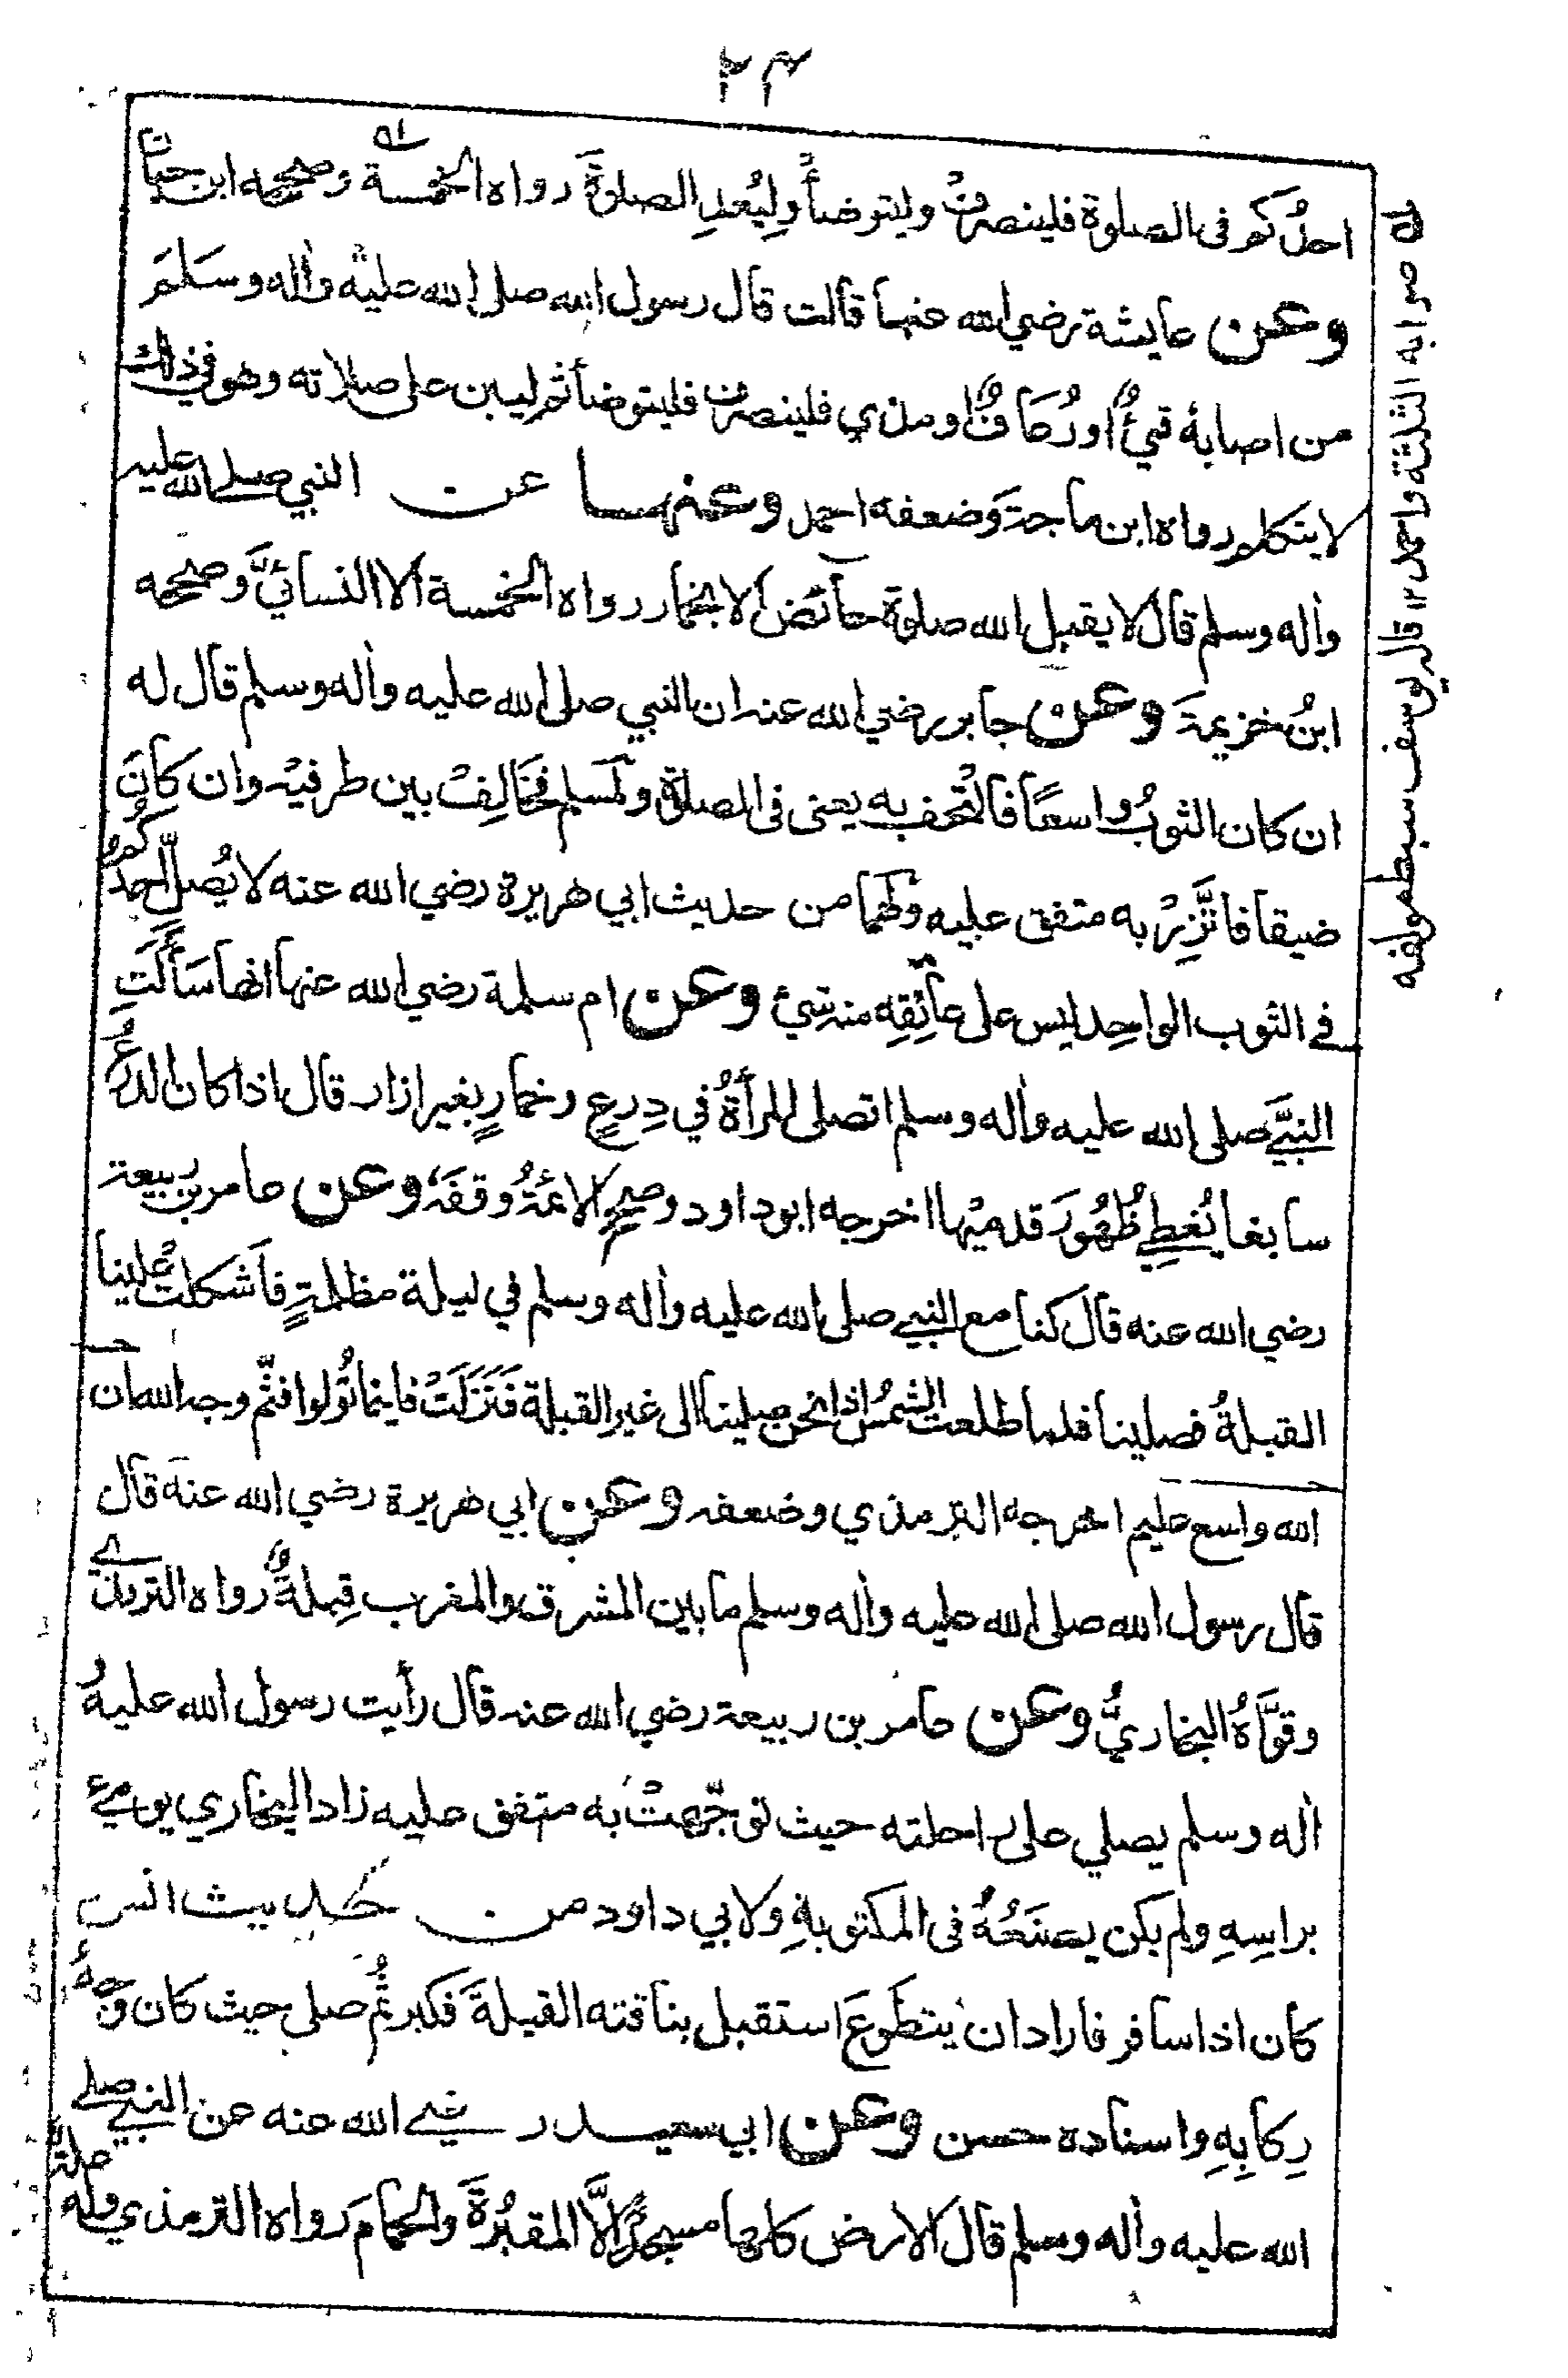 ٢٤
احدُكم فى الصلوة فلينصرفْ وليتوضأْ ولِيُعدِ الصلوةَ رواه الخمسة وصححه ابن حبان
وعن عايشة رضي الله عنها قالت قال رسول الله صلى الله عليه واٰله وسَلمَ
من اصابهٗ قيءٌ او رُعافٌ او مذي فلينصرف فليتوضأ ثم ليبن على صلاته وهو في ذلك
لا يتكلم رواه ابن ماجة وَضعفه احمد وعنها عن النبي صلى الله عليه
واٰله وسلم قال لا يقبل الله صلوة حائض الا بخمار رواه الخمسة الا النسائيَّ وصححه
ابنُ خزيمةَ وعن جابر رضي الله عنه ان النبي صلى الله عليه واٰله وسلم قال له
ان كان الثوبُ واسعًا فالتحف به يعنى فى الصلوة ولمسلم فخَالِفْ بين طرفيْه وان كانَ
ضيقا فاتَّزِرْ به متفق عليه ولهما من حديث ابي هريرة رضي الله عنه لا يُصلِّ احدُكُم
في الثوب الواحِد ليس على عاتِقِه منه شيء وعن ام سلمة رضي الله عنها انها سَأَلَتِ
النبيَّ صلى الله عليه واٰله وسلم اتصلى المرأةُ في دِرعٍ وخمارٍ بغير ازار قال اذا كان الدرعُ
سابغا يُغطي ظُهُورَ قدميْها اخرجه ابو داود وصحح الائمةُ وقفَهٗ وعن عامر بن ربيعة
رضي الله عنه قال كنا مع النبي صلى الله عليه واٰله وسلم في ليلة مظلمةٍ فاَشكلتْ علينا
القبلةُ فصلينا فلما طلعت الشمسُ اذا نحن صلينا الى غير القبلة فَنَزَلَتْ فاينما تُولوا فثَّم وجه الله ان
الله واسع عليم اخرجه الترمذي وضعفه وعن ابي هريرة رضي الله عنه قال
قال رسول الله صلى الله عليه واٰله وسلم ما بين المشرق والمغرب قِبلةٌ رواه الترمذي
وقوَّاهُ البخاريُّ وعن عامر بن ربيعة رضي الله عنه قال رأيت رسول الله عليه و
اٰله وسلم يصلي على راحلته حيث توجَّهتْ به متفق عليه زاد البخاري يومئ
براسِهِ ولم يكن يصنَعُهُ فى المكتوبةِ ولابي داود من حديث انس
كان اذا سافر فاراد ان يتطوعَ استقبل بناقته القبلةَ فكبر ثُم صلى حيث كان وجهُ
رِكابِهِ واسناده حسن وعن ابي سعيد رضي الله عنه عن النبي صلى
الله عليه واٰله وسلم قال الارض كلها مسجدٌ الَّا المقبُرةَ والحمامَ رواه الترمذي وله علة
له صوابه الثلثة واحمد ١٢ قاله يوسف سبط مولفه